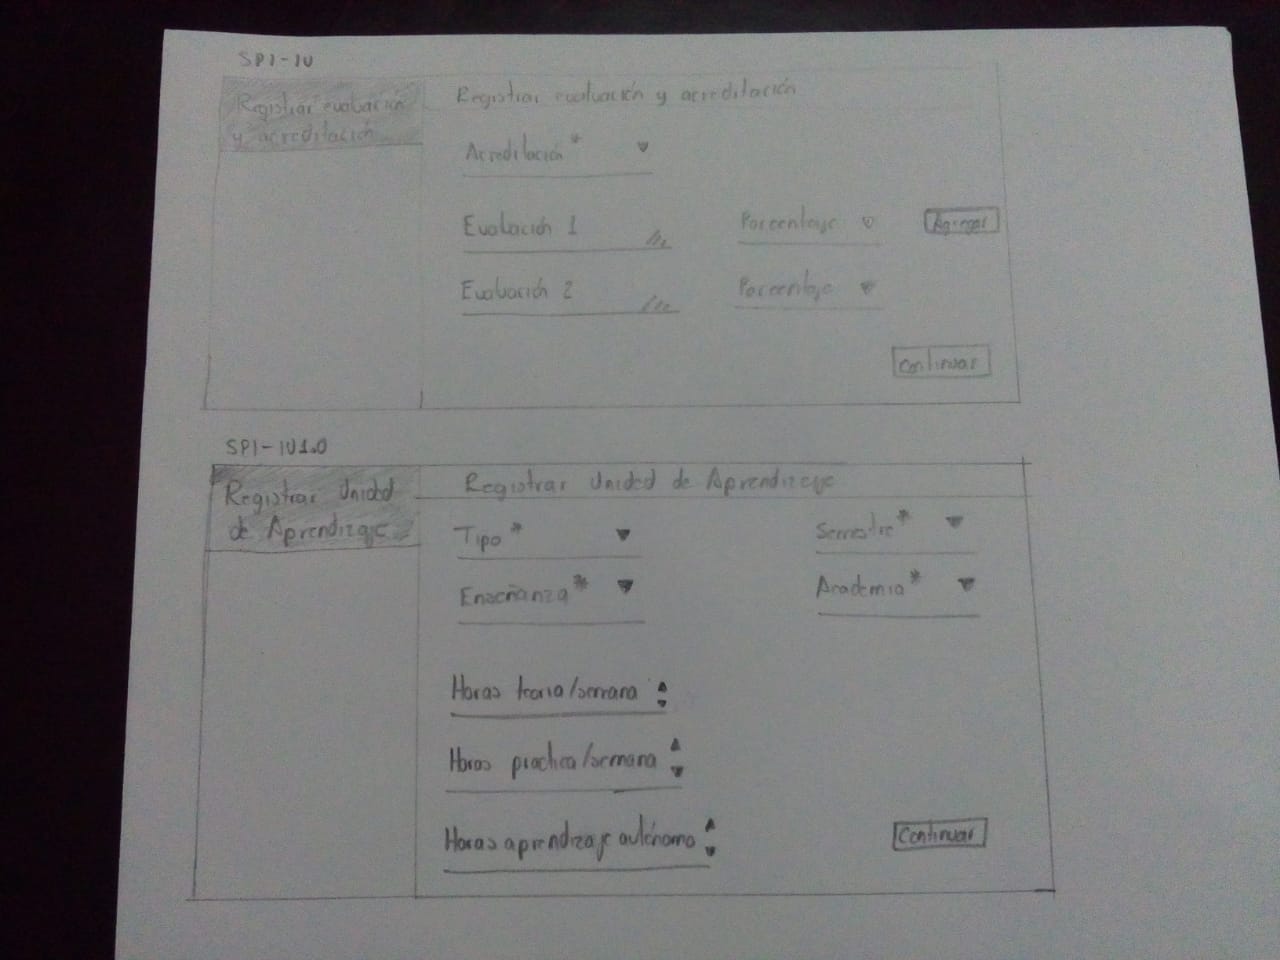 SP1-IU
Registrar evaluación
y acreditación
Registrar evaluación y acreditación
Acreditación*
Evaluación 1
Porcentaje
Agregar
Evaluación 2
Porcentaje
Continuar
SP1-IU1.0
Registrar Unidad
de Aprendizaje
Registrar Unidad de Aprendizaje
Tipo*
Semestre*
Enseñanza*
Academia*
Horas teoria/semana
Horas practica/semana
Horas aprendizaje autónomo
Continuar